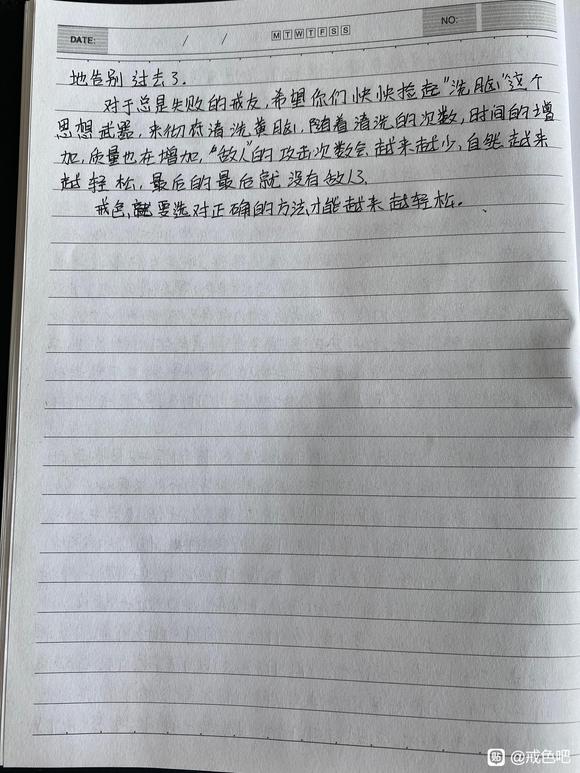 DATE: / / M T W T F S S NO:
地告别过去了.
对于总是失败的戒友,希望你们快快捡起"洗脑"这个
思想武器,来彻底清洗黄脑,随着清洗的次数,时间的增
加,质量也在增加,"敌人"的攻击次数会越来越少,自然越来
越轻松,最后的最后就没有敌人了.
戒色,就要选对正确的方法,才能越来越轻松.
贴 @戒色吧